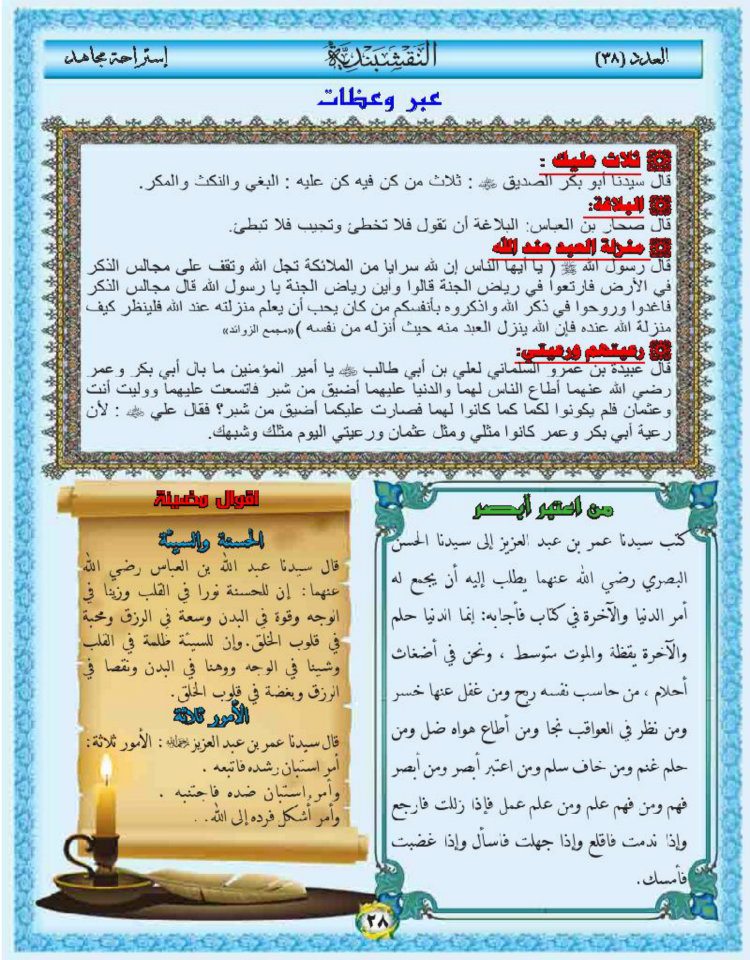 العدد (٣٨)
النقشبندية
إستراحة مجاهد
عبر وعظات
ثلاث عليك :
قال سيدنا أبو بكر الصديق ﷺ : ثلاث من كن فيه كن عليه : البغي والنكث والمكر.
البلاغة:
قال صحار بن العباس: البلاغة أن تقول فلا تخطئ وتجيب فلا تبطئ.
منزلة العبد عند الله
قال رسول الله ﷺ ( يا أيها الناس إن لله سرايا من الملائكة تجل الله وتقف على مجالس الذكر
في الأرض فارتعوا في رياض الجنة قالوا وأين رياض الجنة يا رسول الله قال مجالس الذكر
فاغدوا وروحوا في ذكر الله واذكروه بأنفسكم من كان يحب أن يعلم منزلته عند الله فلينظر كيف
منزلة الله عنده فإن الله ينزل العبد منه حيث أنزله من نفسه )«مجمع الزوائد»
رعيتهم ورعيتي:
قال عبيدة بن عمرو السلماني لعلي بن أبي طالب ﷺ يا أمير المؤمنين ما بال أبي بكر وعمر
رضي الله عنهما أطاع الناس لهما والدنيا عليهما أضيق من شبر فاتسعت عليهما ووليت أنت
وعثمان فلم يكونوا لكما كما كانوا لهما فصارت عليكما أضيق من شبر؟ فقال علي ﷺ : لأن
رعية أبي بكر وعمر كانوا مثلي ومثل عثمان ورعيتي اليوم مثلك وشبهك.
من اعتبر أبصر
كتب سيدنا عمر بن عبد العزيز إلى سيدنا الحسن
البصري رضي الله عنهما يطلب إليه أن يجمع له
أمر الدنيا والآخرة في كتاب فأجابه: إنما الدنيا حلم
والآخرة يقظة والموت متوسط ، ونحن في أضغاث
أحلام ، من حاسب نفسه ربح ومن غفل عنها خسر
ومن نظر في العواقب نجا ومن أطاع هواه ضل ومن
حلم غنم ومن خاف سلم ومن اعتبر أبصر ومن أبصر
فهم ومن فهم علم ومن علم عمل فإذا زللت فارجع
وإذا ندمت فاقلع وإذا جهلت فاسأل وإذا غضبت
فأمسك.
اقوال مضيئة
الحسنة والسيئة
قال سيدنا عبد الله بن العباس رضي الله
عنهما: إن للحسنة نورا في القلب وزينا في
الوجه وقوة في البدن وسعة في الرزق ومحبة
في قلوب الخلق.وإن للسيئة ظلمة في القلب
وشينا في الوجه ووهنا في البدن ونقصا في
الرزق وبغضة في قلوب الخلق.
الأمور ثلاثة
قال سيدنا عمر بن عبد العزيز : الأمور ثلاثة:
أمر استبان رشده فاتبعه .
وأمر استبان ضده فاجتنبه .
وأمر أشكل فرده إلى الله. .
٢٨